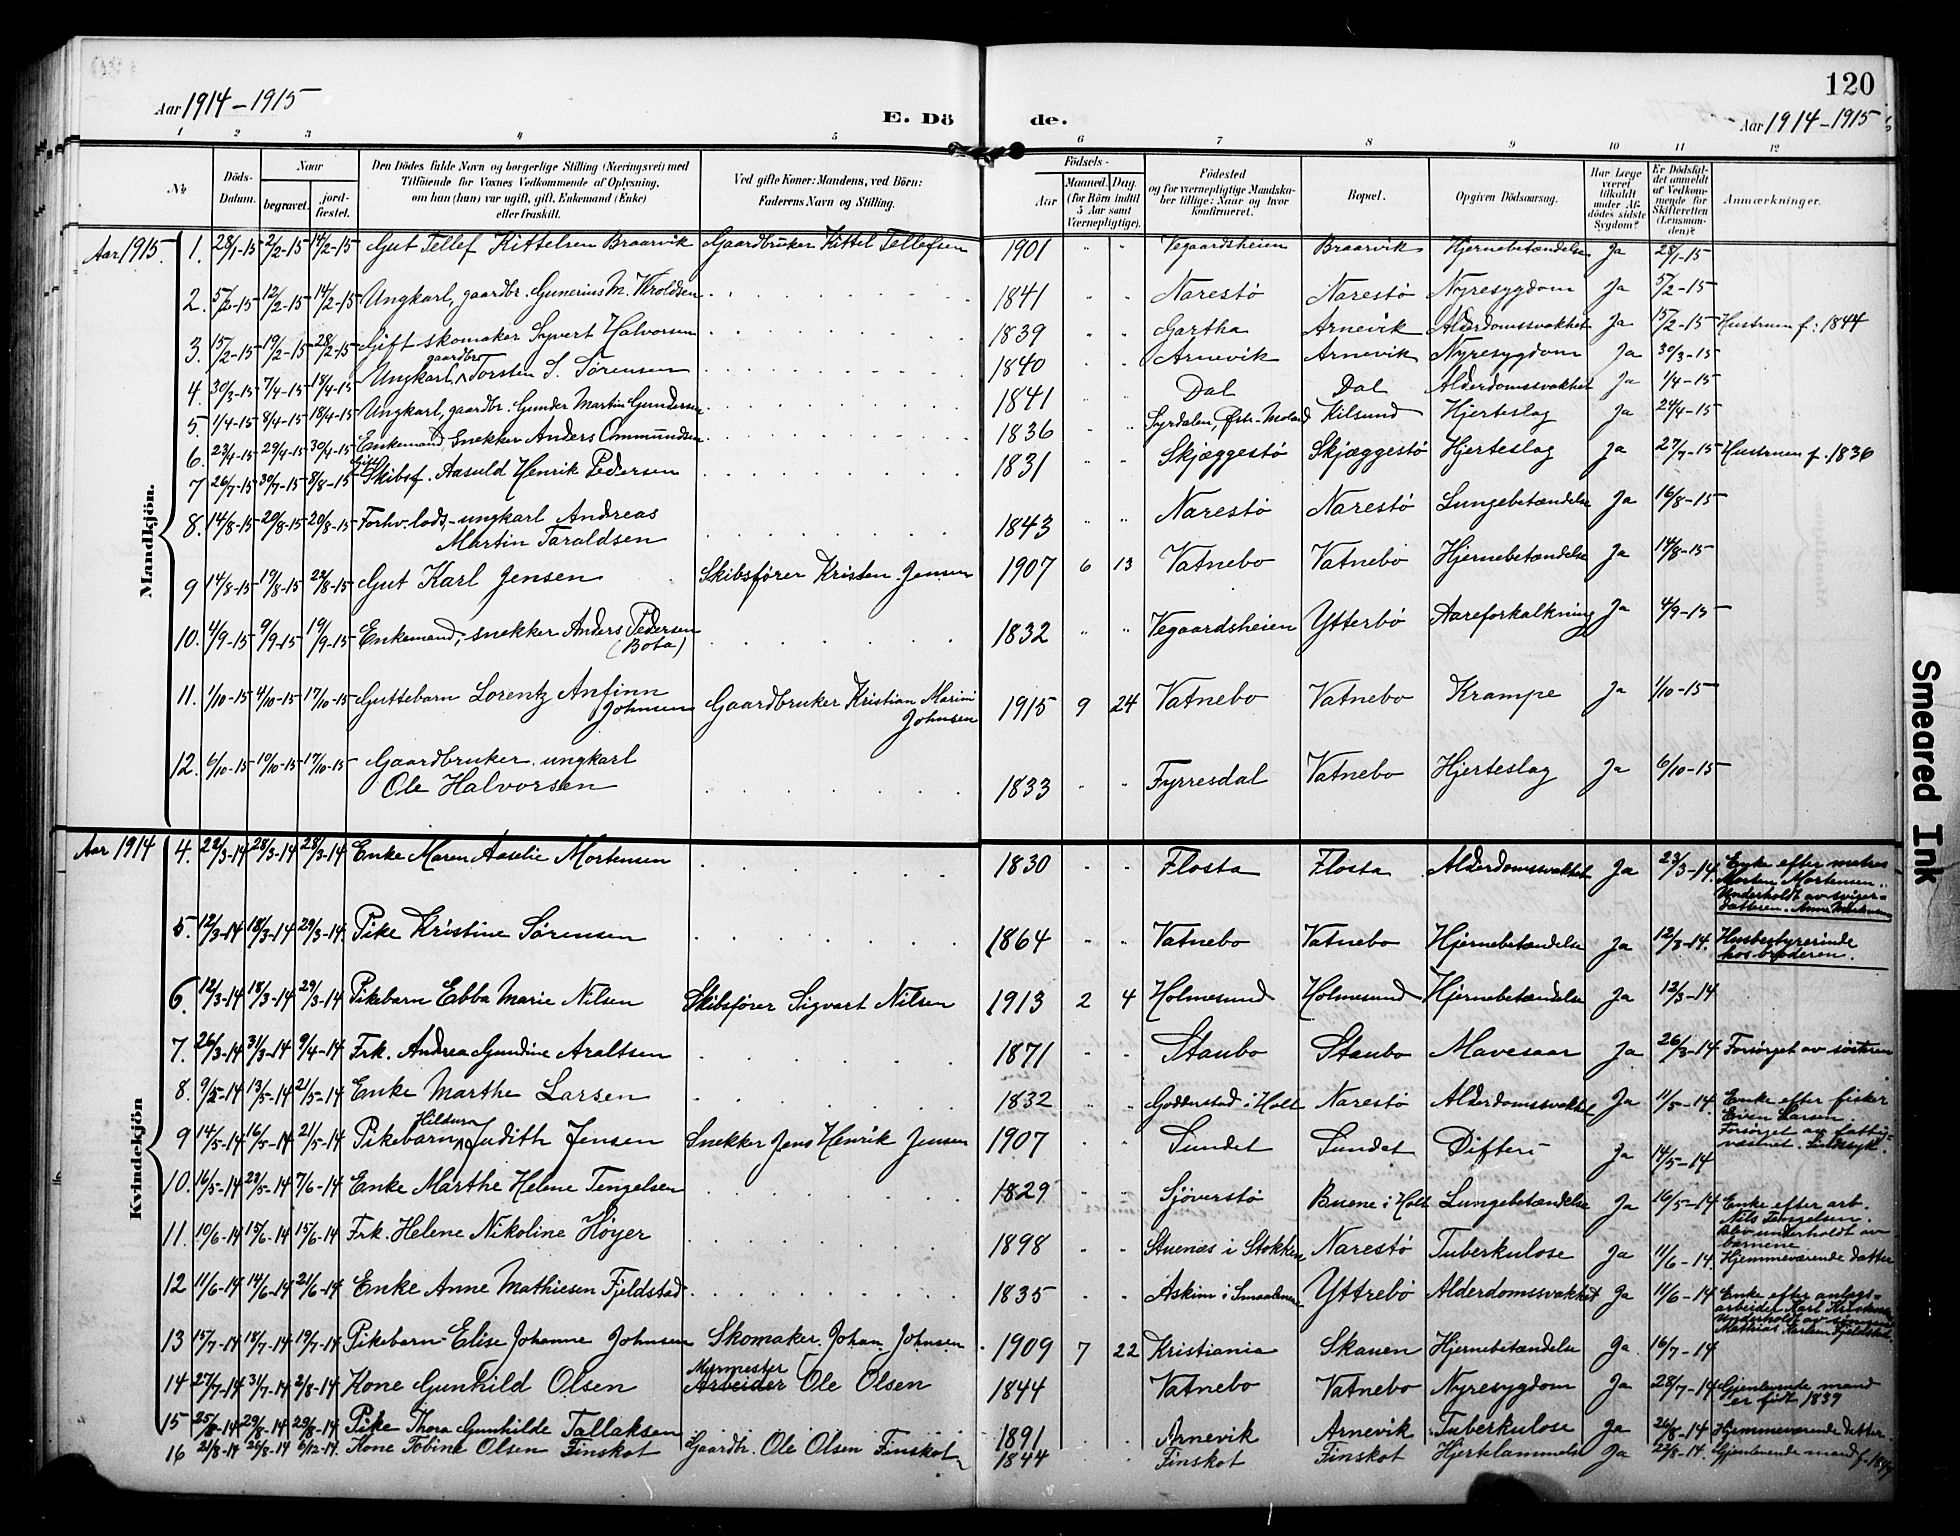 120
Aar 1914-1915
E. Dö de.
Aar 1914-1915
1 2 3 4 5 6 7 8 9 10 11 12
No. Döds-Datum. Naar begravet. jord-fæstet. Den Dödes fulde Navn og borgerlige Stilling (Næringsvei) med Tilföiende for Voxnes Vedkommende af Oplysning, om han (hun) var ugift, gift, Enkemand (Enke) eller fraskilt. Ved gifte Koner: Mandens, ved Börn: Faderens Navn og Stilling. Födsels- Aar Maaned. Dag. (for Börn indtil 5 Aar samt Værnepligtige). Födested og for værnepligtige Mandskaber tillige: Naar og hvor konfirmeret. Bopæl. Opgiven Dödsaarsag. Har Læge været tilkaldt under Afdödes sidste Sygdom? Er Dödsfaldet anmeldt af Vedkommende for Skifteretten (Lensmanden)? Anmærkninger.
Mandkjön.
Aar 1915. 1. 28/1-15 2/2-15 14/2-15 Gut Tellef Kittelsen Braarvik Gaardbruker Kittel Tellefsen 1901 " " Vegaardsheien Braarvik Hjernebetændelse Ja 28/1-15
2. 5/2-15 12/2-15 14/2-15 Ungkarl, gaardbr. Gunerius M. Wroldsen 1841 " " Narestø Narestø Nyresygdom Ja 5/2-15
3. 15/2-15 19/2-15 28/2-15 Gift skomaker Syvert Halvorsen 1839 " " Gartha Arnevik Alderdomssvakhet Ja 15/2-15 Hustruen f: 1844
4. 30/3-15 7/4-15 18/4-15 Ungkarl, gaardbr. Torsten S. Tørensen 1840 Arnevik Arnevik Nyresygdom Ja 30/3-15
5. 1/4-15 8/4-15 18/4-15 Ungkarl, gaardbr. Gunder Martin Gundersen 1841 " " Dal Dal Alderdomssvakhet Ja 1/4-15
6. 23/4-15 29/4-15 30/4-15 Enkemand, snekker Anders Ommundsen 1836 " " Syrdalen, Østr. Moland Kilsund Hjerteslag Ja 24/4-15
7 26/7-15 30/7-15 8/8-15 Gift Skibsf. Aasuld Henrik Pedersen 1831 " " Skjæggestø Skjæggestø Hjerteslag Ja 27/7-15 Hustruen f. 1836
8. 14/8-15 20/8-15 20/8-15 Forhv. lods, - ungkarl Andreas
Martin Taraldsen 1843 " " Narestø Narestø Lungebetændelse Ja 16/8-15
9 14/8-15 19/8-15 22/8-15 Gut Karl Jensen Skibsfører Kristen Jensen 1907 6 13 Vatnebo Vatnebo Hjernebetændelse Ja 14/8-15
10. 4/9-15 9/9-15 19/9-15 Enkemand, - snekker Anders Pedersen
(Bota) 1832 " " Vegaardsheien Ytterbø Aareforkalkning Ja 4/9-15
11. 1/10-15 4/10-15 17/10-15 Guttebarn Lorentz Anfinn
Johnsen Gaardbruker Kristian Marini
Johnsen 1915 9 24 Vatnebo Vatnebo Krampe Ja 1/10-15
12. 6/10-15 10/10-15 17/10-15 Gaardbruker, ungkarl
Ole Halvorsen 1833 " " Fyrresdal Vatnebo Hjerteslag Ja 6/10-15
Kvindekjön
Aar 1914 4. 22/3-14 28/3-14 28/3-14 Enke Maren Aaselie Mortensen 1830 " " Flosta Flosta Alderdomssvakhet Ja 23/3-14. Enke efter matros
Morten Mortensen.
Underholdt av sviger-
datteren.
5. 12/3-14 18/3-14 29/3-14 Pike Kristine Sørensen 1864 " " Vatnebo Vatnebo Hjernebetændelse Ja 12/3-14. Husbestyrerinde
hos broderen.
6. 12/3-14 18/3-14 29/3-14 Pikebarn Ebba Marie Nilsen Skibsfører Sigvart Nilsen 1913 2 4 Holmesund Holmesund Hjernebetændelse Ja 12/3-14
7. 26/3-14 31/3-14 9/4-14 Frk. Andrea Gundine Araltsen 1871 " " Staubo Staubo Mavesaar Ja 26/3-14 Forsørget av søsteren
8. 9/5-14 13/5-14 21/5-14 Enke Marthe Larsen 1832 " " Godderstad i Holt Narestø Alderdomssvakhet Ja 11/5-14. Enke efter fisker
Even Larsen.
Forsørget av fattig-
væsenet. Sindssyk.
9 14/5-14 16/5-14 21/5-14 Pikebarn Hildur Judith Jensen Snekker Jens Henrik Jensen 1907 " " Sundet Sundet Difteri Ja 14/5-14
10. 16/5-14 23/5-14 7/6-14 Enke Marthe Helene Tengelsen 1829 " " Sjöverstö Buene i Holt Lungebetændelse Ja 16/5-14 Enke efter arb.
Nils Tengelsen.
Blev underholdt av
barnene
11. 10/6-14 15/6-14 15/6-14 Frk. Helene Nikoline Høyer 1898 " " Stuenæs i Stokken Narestø Tuberkulose Ja 11/6-14. Hjemmeværende datter
12 11/6-14 14/6-14 21/6-14 Enke Anne Mathiesen Fjeldstad 1835 " " Askim i Smaalenene Yttrebø Alderdomssvakhet Ja 11/6-14 Enke efter anlegs-
arbeider Karl
Underholdt av sønnen
Mathias Karlsen Fjeldstad
13 15/7-14 18/7-14 19/7-14 Pikebarn Elise Johanne Johnsen Skomaker Johan Johnsen 1909 7 22 Kristiania Skauen Hjernebetændelse Ja 16/7-14
14 27/7-14 31/7-14 2/8-14 Kone Gunhild Olsen Murmester Arbeider Ole Olsen 1844 Vatnebo Vatnebo Nyresygdom Ja 28/7-14 Gjenlevende mand
er født 1839
15 25/8-14 29/8-14 29/8-14 Pike Thora Gunhilde Tallaksen 1891 Arnevik Arnevik Tuberkulose Ja 26/8-14 Hjemmeværende datter
16 21/8-14 25/8-14 6/12-14 Kone Tobine Olsen Finskot Gaardbr. Ole Olsen Finskot 1844 Finskot Finskot Hjertelammelse Ja 22/8-14. Gjenlevende mand f. 1844
Smeared Ink